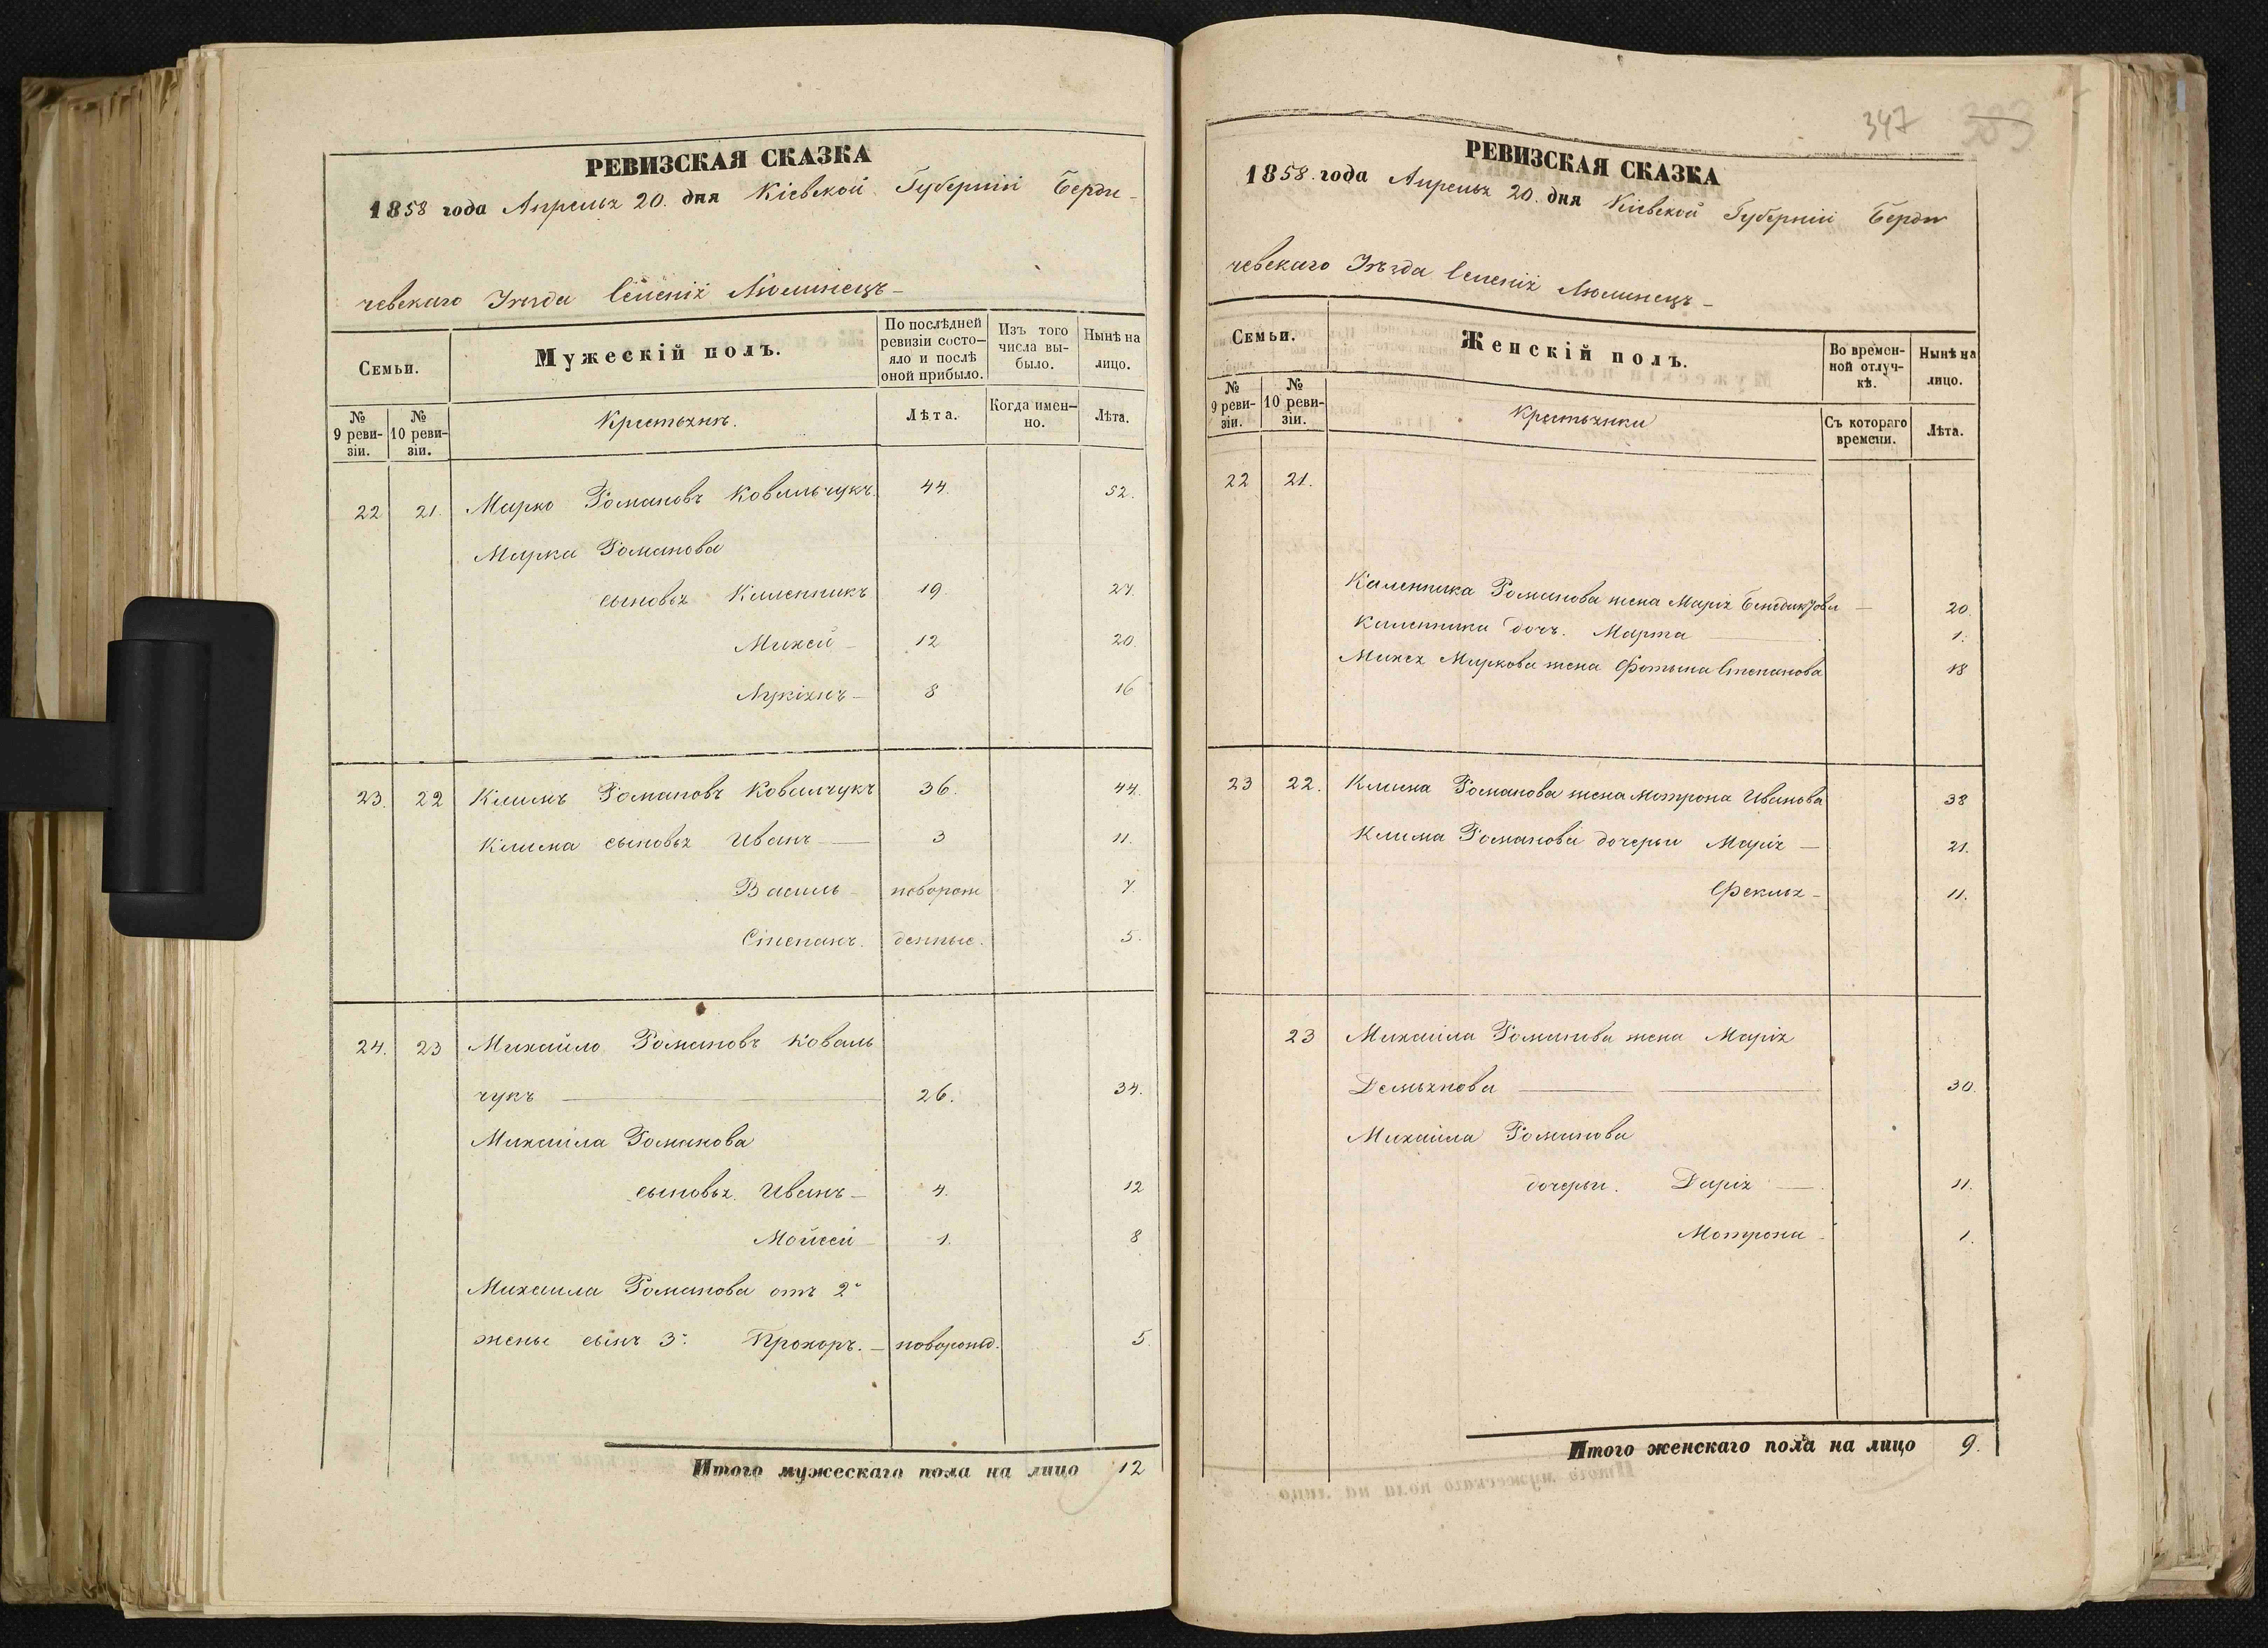 РЕВИЗСКАЯ СКАЗКА
1858 года Апреля 20. дня Кіевской Губерніи Берди-
чевскаго Уѣзда Селенія Люлинецъ-
Семьи.
Мужескій полъ.
По послѣдней ревизіи состо-яло и послѣ оной прибыло.
Изъ того числа вы-было.
Нынѣ на лицо.
№ 9 реви-зіи.
№ 10 реви-зіи.
Крестьянъ.
Лѣта.
Когда имен-но.
Лѣта.
22 21. Марко Романовъ Ковальчукъ. 44. 52.
Марка Романова
сыновья Каленникъ 19 27.
Михей - 12 20.
Лукіянъ - 8 16
23. 22 Климъ Романовъ Ковалчукъ 36. 44.
Клима сыновья Иванъ - 3 11.
Василь - новорож 7.
Степанъ. денные. 5.
24. 23 Михайло Романовъ Коваль
чукъ 26. 34.
Михайла Романова
сыновья. Иванъ - 4. 12
Мойсей - 1. 8
Михаила Романова отъ 2й
жены сынъ 3й Прохоръ. - новорожд. 5.
Итого мужескаго пола на лицо 12
347 383
РЕВИЗСКАЯ СКАЗКА
1858. года Апреля 20. дня Кіевской Губерніи Берди
чевскаго Уѣзда Селенія Люлинецъ-
Семьи.
Женскій полъ.
Во времен-ной отлуч-кѣ.
Нынѣ на лицо.
№ 9 реви-зіи.
№ 10 реви-зіи.
Крестьянки
Съ котораго времени.
Лѣта.
22 21.
Каленника Романова жена Марія Бенедиктова - 20.
Каленника дочь. Марта 1.
Михея Маркова жена Фотына Степанова 18
23 22. Клима Романова жена Мотрона Иванова 38
Клима Романова дочеры Марія - 21.
Фекля - 11.
23 Михаила Романова жена Марія
Демьянова 30.
Михайла Романова
дочеры. Дарія - 11.
Мотрона - 1.
Итого женскаго пола на лицо 9.